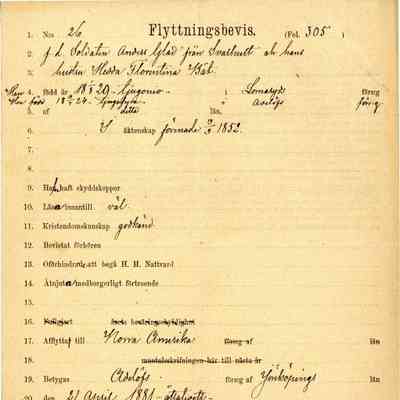 Flyttningsbevis.
1. N:o 26 (Fol. 305)
2. f. d. Soldaten Anders Glad från Svalhult oh hans
3. hustru Hedda Florentina Bäk.
4. Han född år 18 29 Ljugomo i Lomaryd föreg
Hon född 18 24 Asslöfs föreg
5. af ditto län,
6. I äktenskap förenade 1852.
7.
8.
9. Ha haft skyddskoppor
10. Läsa innantill väl
11. Kristendomskunskap godkänd
12. Bevistat förhören
13. Oförhindrade att begå H. H. Nattvard
14. Åtnjuta medborgerligt förtroende
15.
16.
17. Afflytta till Norra Amerika föreg af län
18. mantalsskrifningen här till nästa år
19. Betygas Adelöfs föreg af Jönköpings län
20. den 21 April 1881